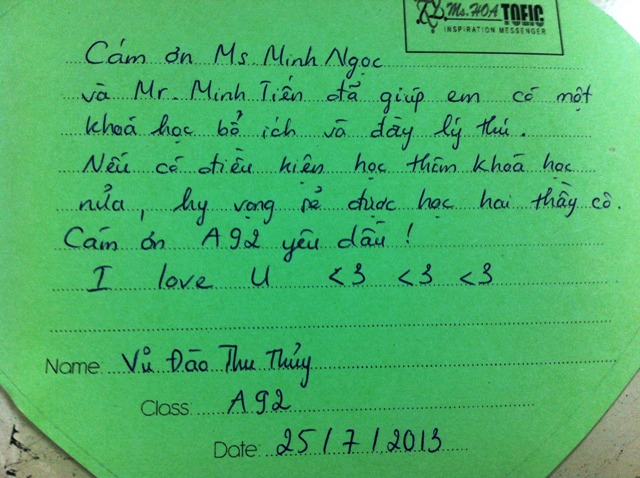 Ms. HOA TOEIC
INSPIRATION MESSENGER
Cám ơn Ms. Minh Ngọc
và Mr. Minh Tiến đã giúp em có một
khoá học bổ ích và đầy lý thú.
Nếu có điều kiện học thêm khoá học
nửa, hy vọng sẻ được học hai thầy cô.
Cám ơn A92 yêu dấu!
I love U <3 <3 <3
Name: Vũ Đào Thu Thủy
Class: A92
Date: 25/7/2013